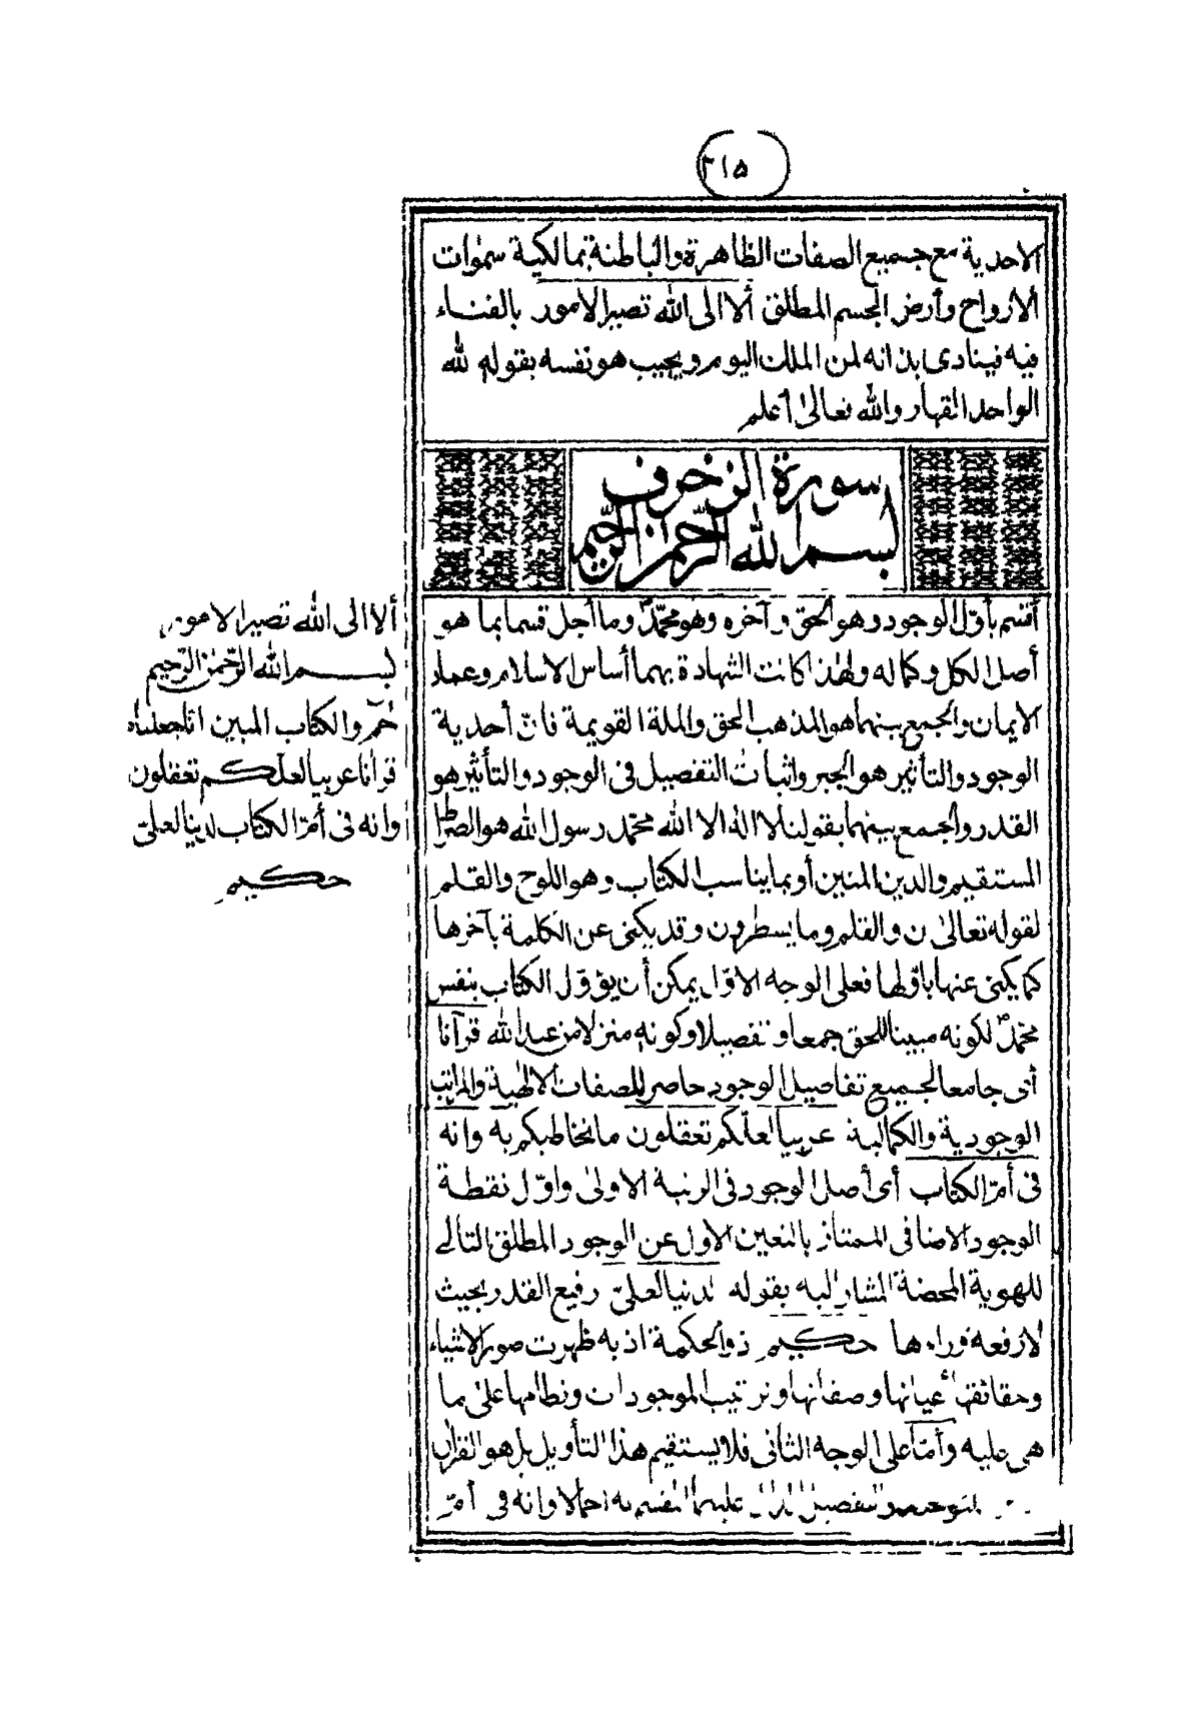 ٣١٥
الاحدية مع جميع الصفات الظاهرة والباطنة بمالكية سموات
الأرواح وأرض الجسم المطلق ألا الى الله تصير الامور بالفناء
فيه فينادى بذاته لمن الملك اليوم ويجيب هو نفسه بقوله لله
الواحد القهار والله تعالى أعلم
سورة الزخرف
بسم الله الرحمن الرحيم
أقسم بأوّل الوجود وهو الحق وآخره وهو محمّد وما أجل قسما بما هو
أصل الكل وكماله ولهذا كانت الشهادة بهما أساس الاسلام وعماد
الايمان والجمع بينهما هو المذهب الحق والملة القويمة فانّ أحدية
الوجود والتأثير هو الجبر واثبات التفصيل فى الوجود والتأثير هو
القدر والجمع بينهما بقولنا لا اله الا الله محمد رسول الله هو الصراط
المستقيم والدين المتين أو بما يناسب الكتاب وهو اللوح والقلم
لقوله تعالى ن والقلم وما يسطرون وقد يكنى عن الكلمة بآخرها
كما يكنى عنها باوّلها فعلى الوجه الاوّل يمكن أن يؤوّل الكتاب بنفس
محمّد لكونه مبينا للحق جمعا وتفصيلا وكونه منزلا من عند الله قرآنا
أى جامعا لجميع تفاصيل الوجود حاصر للصفات الالهية والمراتب
الوجودية والكمالية عربيا لعلّكم تعقلون ما نخاطبكم به وانه
فى أمّ الكتاب أى أصل الوجود فى الرتبة الاولى واوّل نقطة
الوجود الاضافى الممتاز بالتعين الاول عن الوجود المطلق التالى
للهوية المحضة المشار اليه بقوله لدينا لعلىّ رفيع القدر بحيث
لا رفعة وراءها حكيم ذو الحكمة اذ به ظهرت صور الاشياء
وحقائقها أعيانها وصفاتها وترتيب الموجودات ونظامها على ما
هى عليه وأمّا على الوجه الثانى فلا يستقيم هذا التأويل بل هو القرآن
التوحيد والتفصيل عليهما القسم به اجمالا وانه فى أمّ
ألا الى الله تصير الامور
بسم الله الرّحمن الرّحيم
حٓمٓ والكتاب المبين انا جعلناه
قرآنا عربيا لعلّكم تعقلون
وانه فى أمّ الكتاب لدينا لعلىّ
حكيم